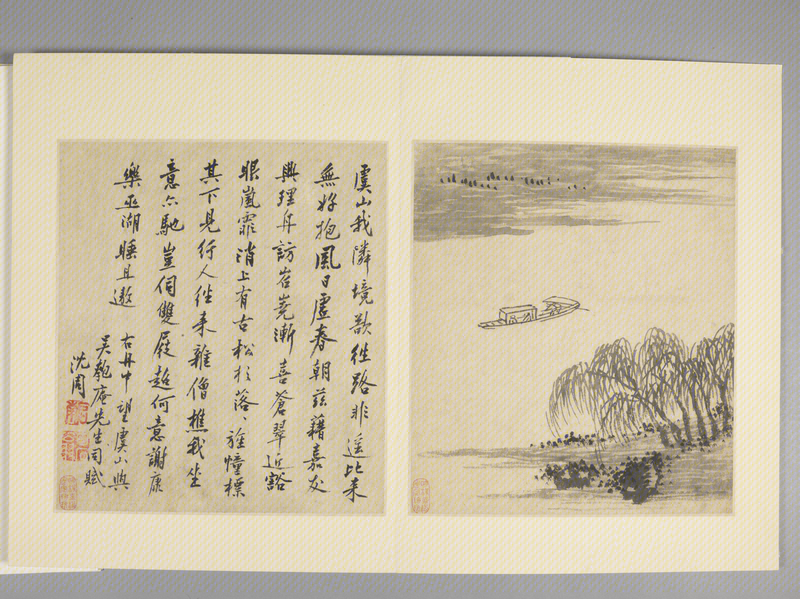 虞山我隣境歘往路非遥比来
無好抱風日虛春朝茲藉嘉友
興理舟訪岧嶤漸喜蒼翠近豁
眼嵐霏消上有古松杉落、旌幢標
其下見行人往来雜僧樵我坐
意亦馳豈伺雙屐超何意謝康
樂巫湖睡且遨
右舟中望虞山與
吳匏庵先生同賦
沈周